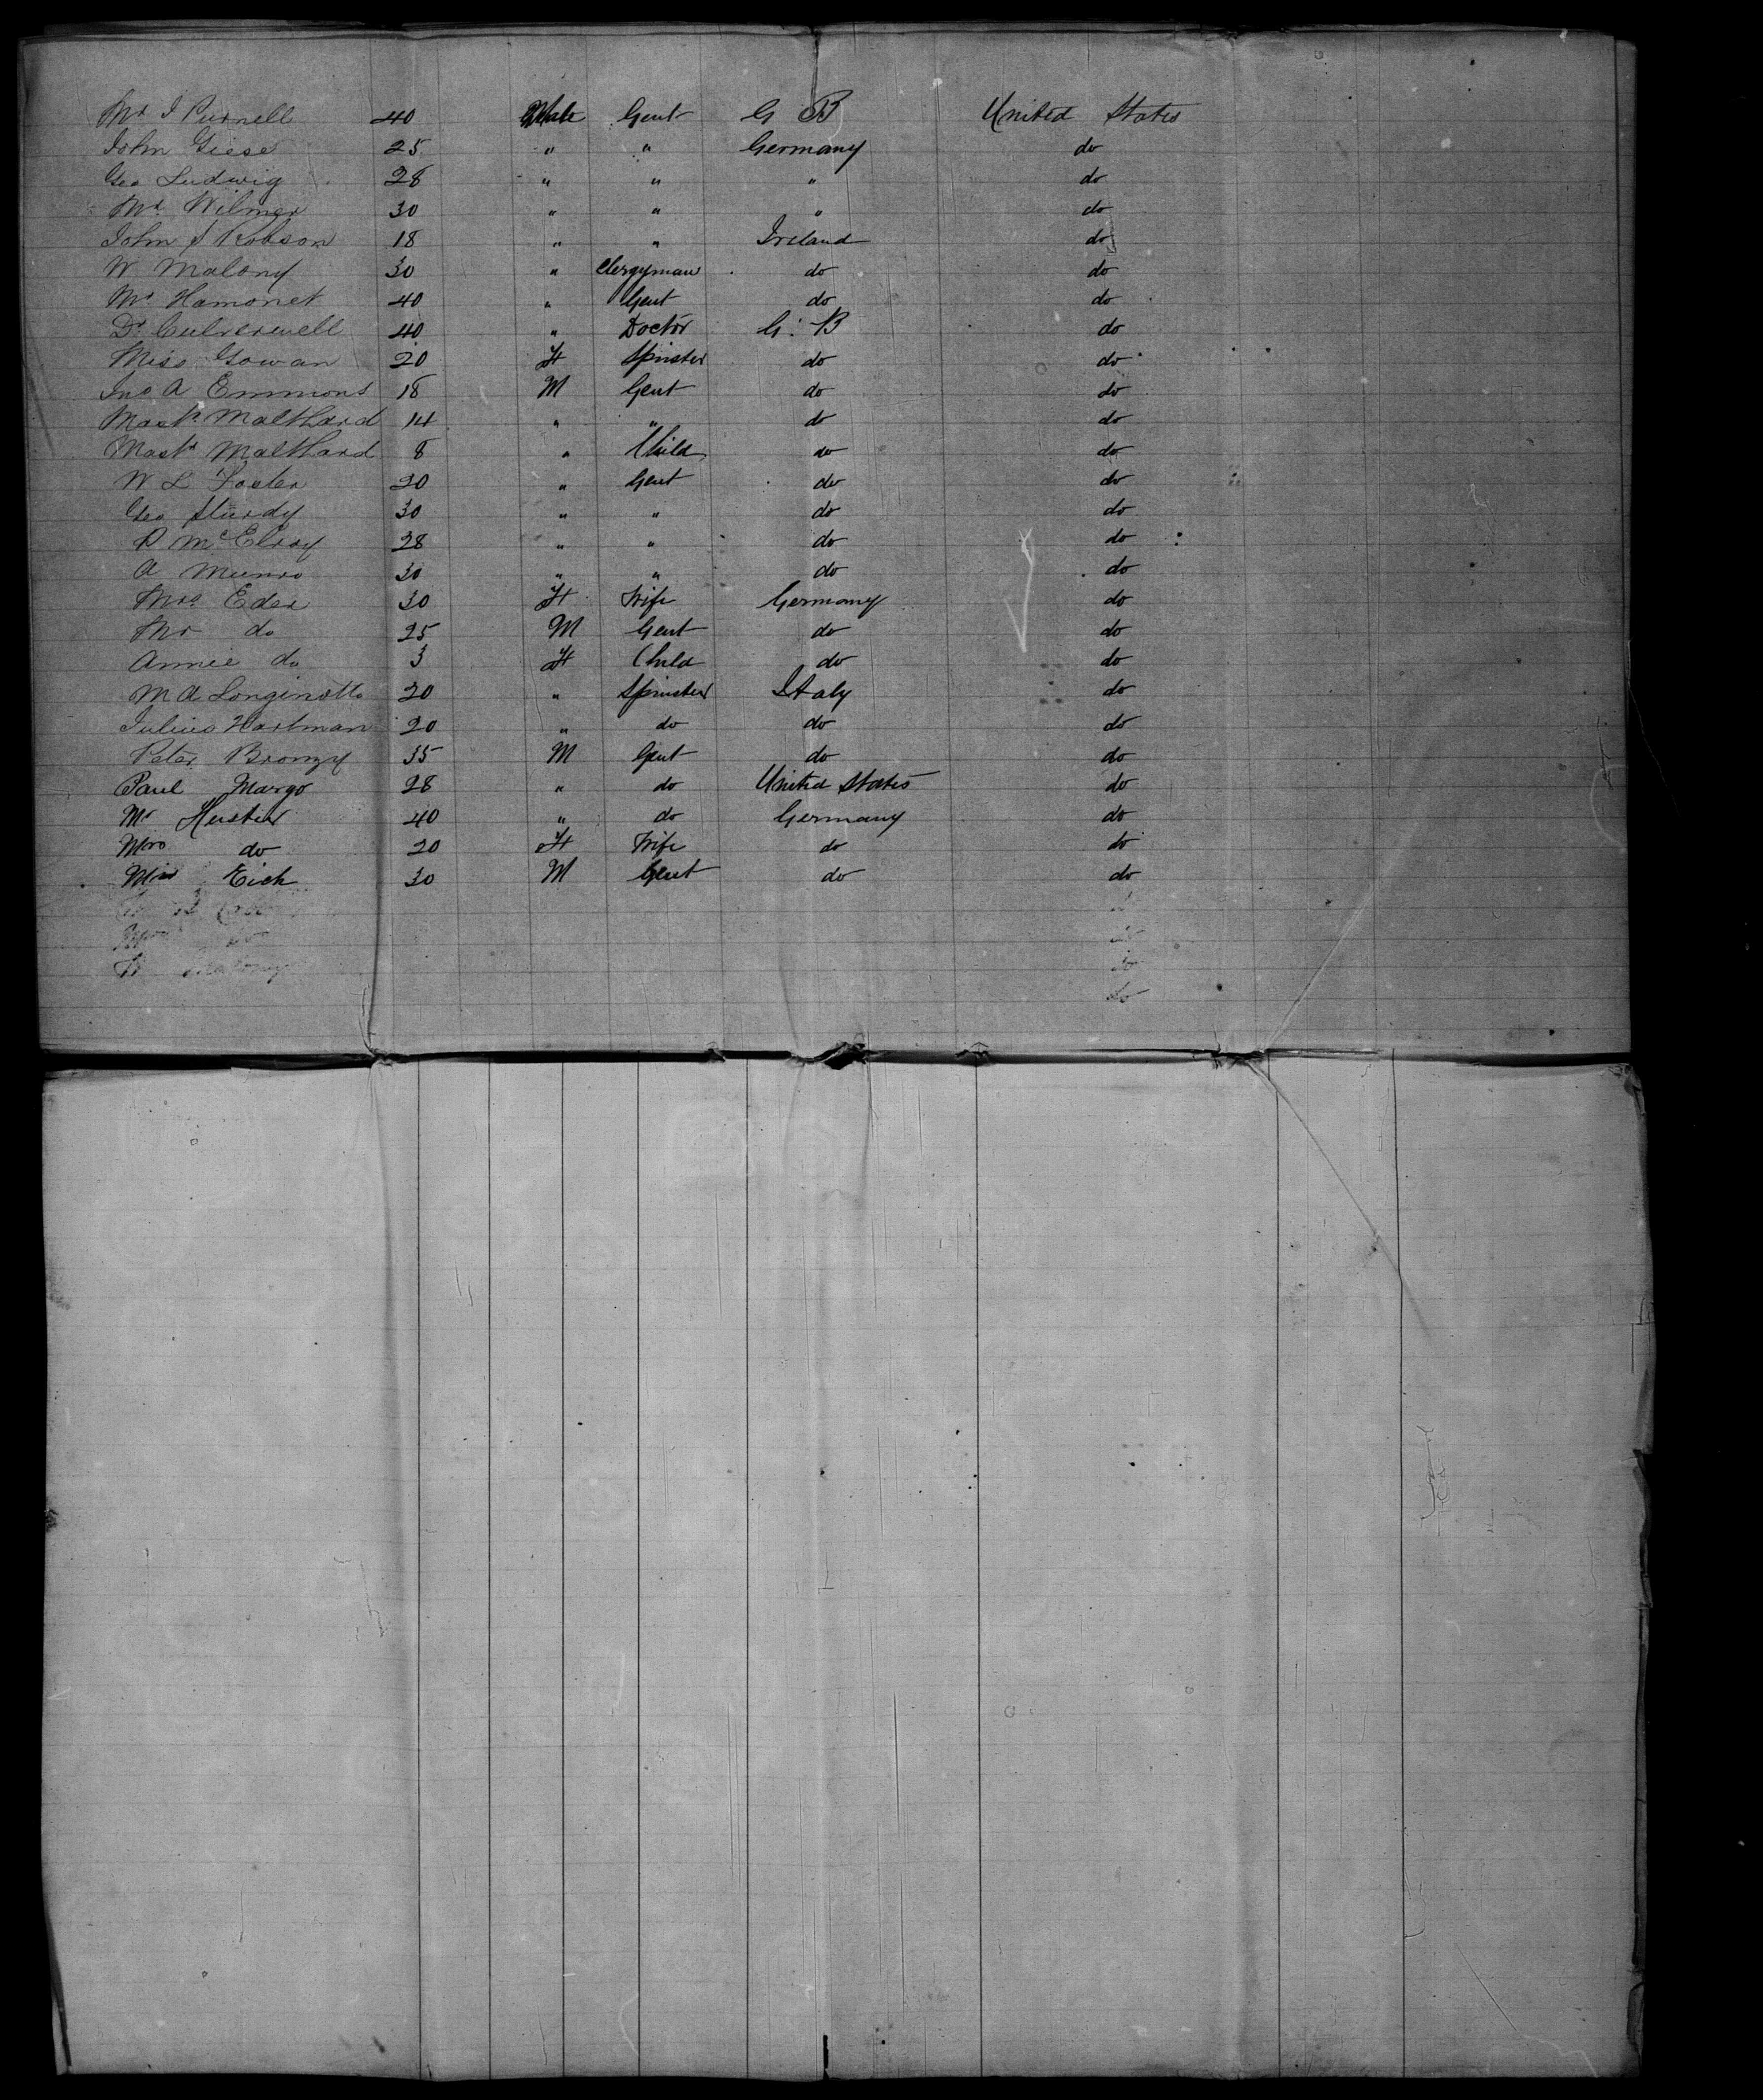 Mr J Purnell 40 Male Gent G B United States
John Giese 25 " " Germany do
Geo Ludwig 28 " " " do
Mr Wilmer 30 " " " do
John S Robson 18 " " Ireland do
W. Malony 30 " Clergyman do do
Mr Hamonet 40 " Gent do do
Dr Culverwell 40 " Doctor G. B do
Miss Gowan 20 F Spinster do do
Jno A Emmons 18 M Gent do do
Mastr Malthard 14 " " do do
Mastr Malthard 8 " Child do do
W L Foster 20 " Gent do do
Geo Sturdy 30 " " do do
P McElroy 28 " " do do
A Munro 30 " " do do
Mrs Eder 30 F Wife Germany do
Mr do 25 M Gent do do
Annie do 3 F Child do do
M A Longinotto 20 " Spinster Italy do
Julius Hartman 20 " do do do
Peter Bronzy 35 M Gent do do
Paul Margo 28 " do United States do
Mr Hester 40 " do Germany do
Mrs do 20 F Wife do do
Eich 30 M Gent do do
do
Mrs do do
W Malony do
do